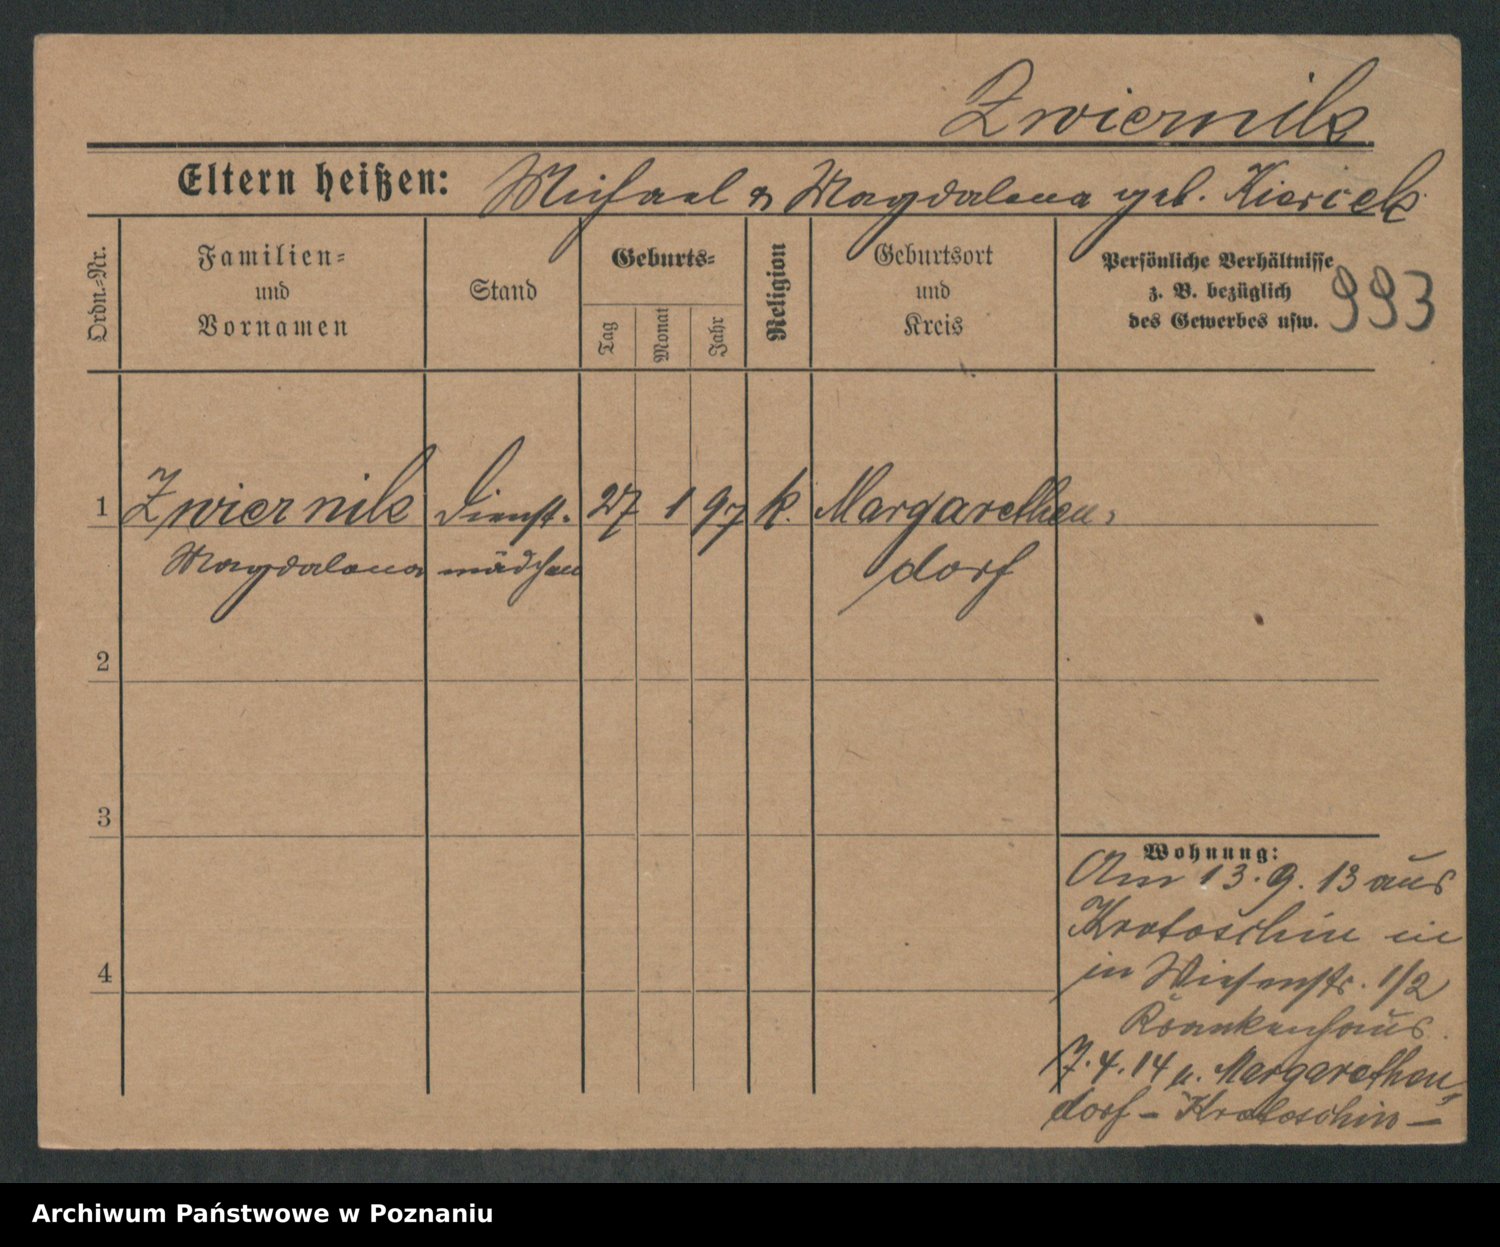 Zwiernik
Eltern heißen: Michael & Magdalena geb. Kiercek
Ordn.-Nr.
Familien-
und
Vornamen
Stand
Geburts-
Tag
Monat
Jahr
Religion
Geburtsort
und
Kreis
Persönliche Verhältnisse
z. B. bezüglich
des Gewerbes usw.
993
1 Zwiernik Dienst- 27 1 97 k. Margarethen-
Magdalena mädchen dorf
2
3
4
Wohnung:
Am 13.9.13 aus
Krotoschin
in Wiesenstr. 1/2
Krankenhaus.
7.4.14 n. Margarethen-
dorf – Krotoschin –
Archiwum Państwowe w Poznaniu